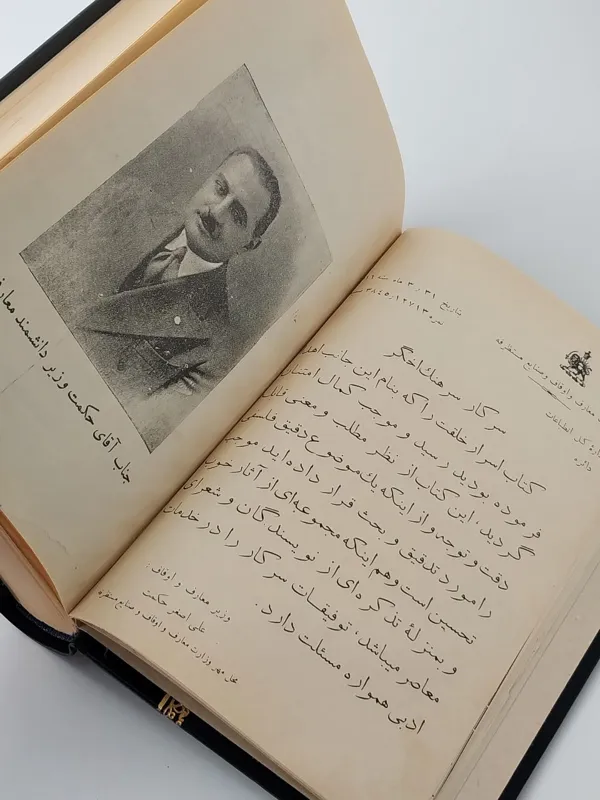 جناب آقای حکمت وزیر دانشمند معارف
معارف و اوقاف و صنایع مستظرفه
اداره کل انطباعات
دائره
تاریخ
نمره
سرکار سرهنگ اخگر
کتاب اسرار خلقت را که بنام این جانب اهدا
فرموده بودید رسید و موجب کمال امتنان
گردید، این کتاب از نظر مطلب و معنی قابل
دقت و توجه و از اینکه یک موضوع دقیق فلسفی
را مورد تدقیق و بحث قرار داده اید موجب
تحسین است و هم اینکه مجموعه‌ای از آثار خوب
و بمنزلهٔ تذکره‌ای از نویسندگان و شعرای
معاصر میباشد، توفیقات سرکار را در خدمات
ادبی همواره مسئلت دارد.
وزیر معارف و اوقاف:
علی اصغر حکمت
محل مهر وزارت معارف و اوقاف و صنایع مستظرفه